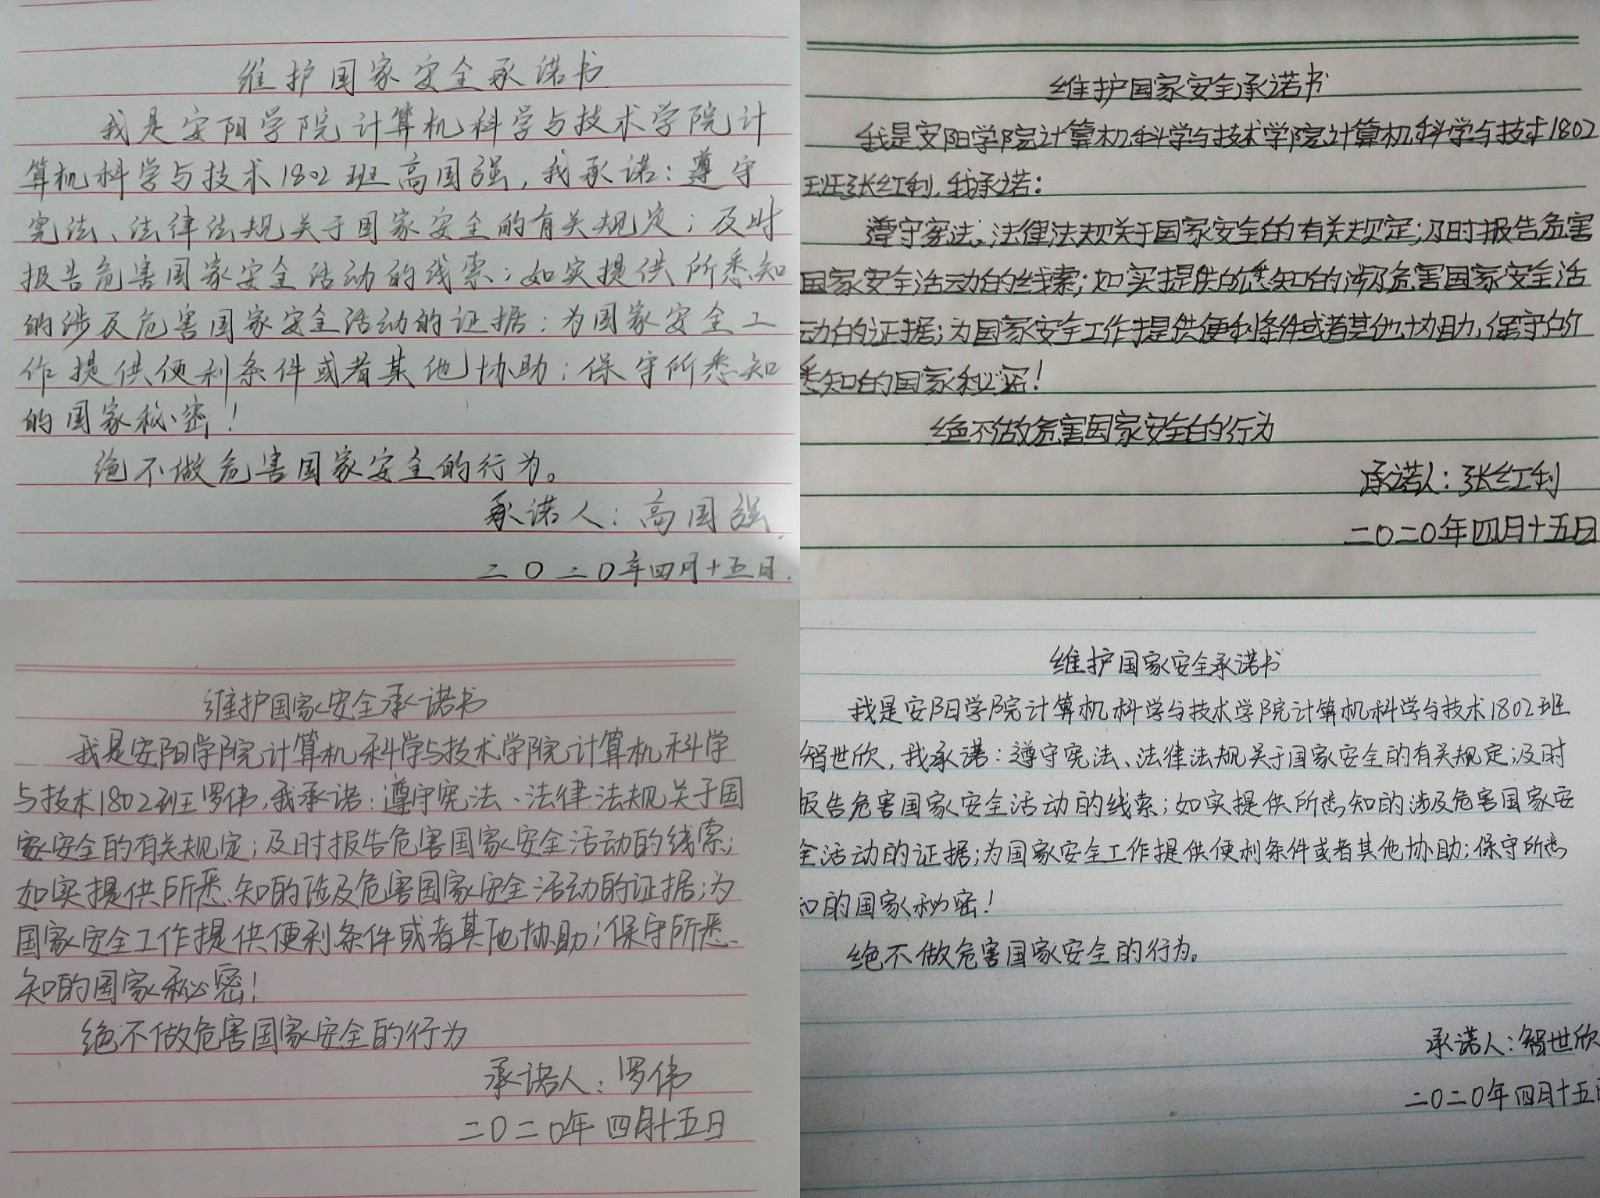 维护国家安全承诺书
我是安阳学院计算机科学与技术学院计
算机科学与技术1802班高国强,我承诺:遵守
宪法、法律法规关于国家安全的有关规定;及时
报告危害国家安全活动的线索;如实提供所悉知
的涉及危害国家安全活动的证据;为国家安全工
作提供便利条件或者其他协助;保守所悉知
的国家秘密!
绝不做危害国家安全的行为。
承诺人:高国强
二〇二〇年四月十五日.
维护国家安全承诺书
我是安阳学院计算机科学与技术学院计算机科学与技术1802
班张红利,我承诺:
遵守宪法、法律法规关于国家安全的有关规定;及时报告危害
国家安全活动的线索;如实提供所悉知的涉及危害国家安全活
动的证据;为国家安全工作提供便利条件或者其他协助,保守所
悉知的国家秘密!
绝不做危害国家安全的行为
承诺人:张红利
二〇二〇年四月十五日
维护国家安全承诺书
我是安阳学院计算机科学与技术学院计算机科学
与技术1802班罗伟,我承诺:遵守宪法、法律法规关于国
家安全的有关规定;及时报告危害国家安全活动的线索;
如实提供所悉知的涉及危害国家安全活动的证据;为
国家安全工作提供便利条件或者其他协助;保守所悉
知的国家秘密!
绝不做危害国家安全的行为
承诺人:罗伟
二〇二〇年四月十五日
维护国家安全承诺书
我是安阳学院计算机科学与技术学院计算机科学与技术1802班
智世欣,我承诺:遵守宪法、法律法规关于国家安全的有关规定;及时
报告危害国家安全活动的线索;如实提供所悉知的涉及危害国家安
全活动的证据;为国家安全工作提供便利条件或者其他协助;保守所悉
知的国家秘密!
绝不做危害国家安全的行为。
承诺人:智世欣
二〇二〇年四月十五日